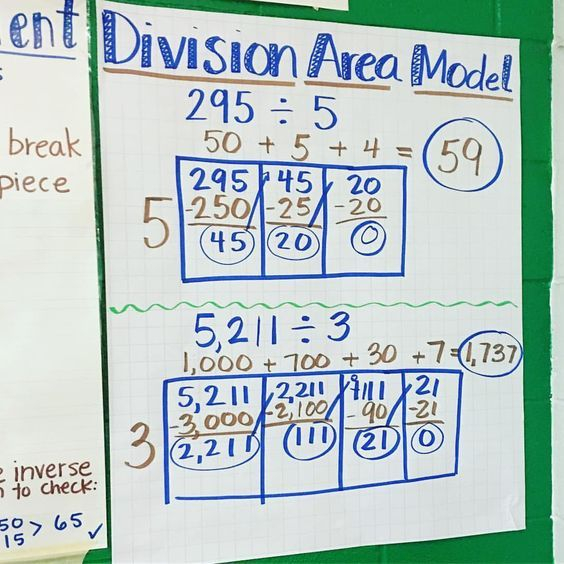 ent
s
break
piece
e inverse
n to check:
50 > 65
15 ✓
Division Area Model
295 ÷ 5
50 + 5 + 4 = 59
295 45 20
5 -250 -25 -20
45 20 0
5,211 ÷ 3
1,000 + 700 + 30 + 7 = 1,737
5,211 2,211 111 21
3 -3,000 -2,100 -90 -21
2,211 111 21 0